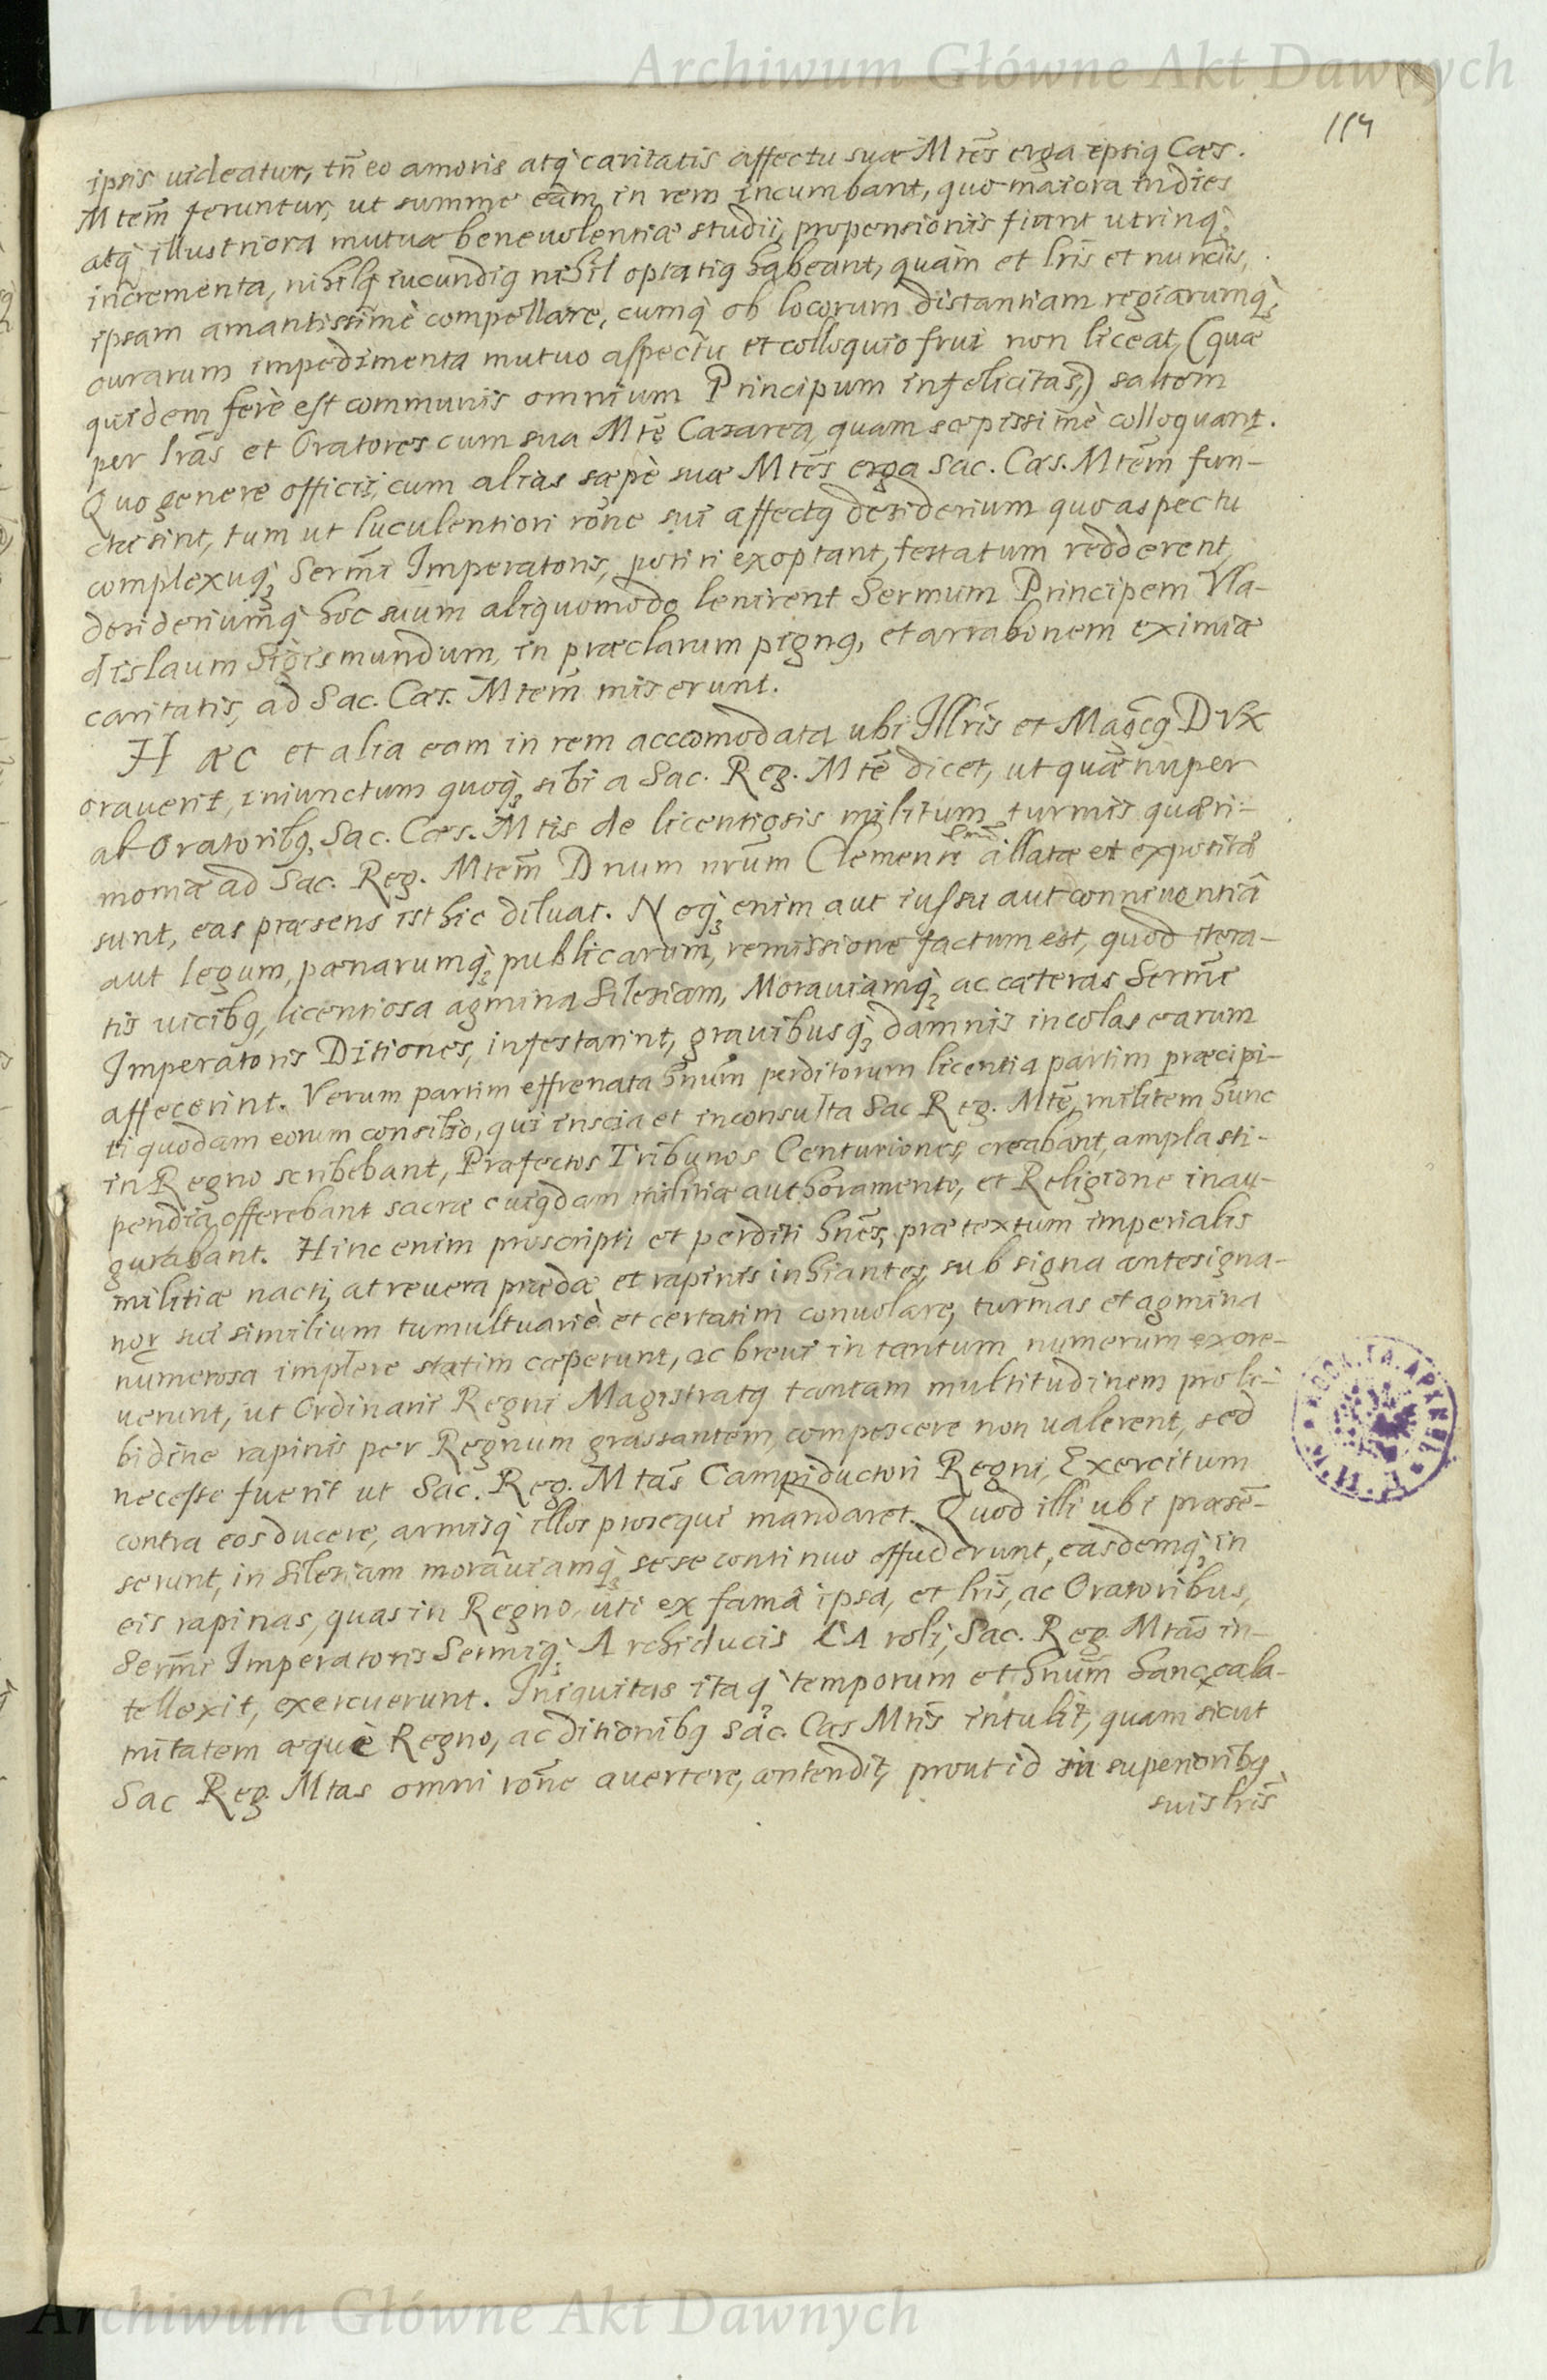 Archiwum Główne Akt Dawnych
114
ipsis uideatur, tñ eo amoris atq̨ caritatis affectu suæ Mtẽs erga ipsiꝯ Cæs.
Mtem̃ feruntur, ut summe eam in rem incumbant, quo maiora indies
atq̨ illustriora mutuæ beneuolentiæ studii, propensionis fiant utrinq̨
incrementa, nihilq̨ iucundiꝯ nihil optatiꝯ habeant, quàm et lrĩs et nunciis,
ipsam amantissimè compellare, cumq̨ ob locorum distantiam regiarumq̨
curarum impedimenta mutuo aspectu et colloquio frui non liceat, (quæ
quidem ferè est communis omnium Principum infelicitas,) saltem
per lrãs et Oratores cum sua Mtẽ Cæsarea, quam sæpissimè colloquant̃.
Quo genere officii, cum alias sæpè suæ Mtẽs erga Sac. Cæs. Mtem̃ fun-
ctæ sint, tum ut luculentiori rõne sui affectꝯ desiderium quo aspectu
complexuq̨ Serm̃i Imperatoris, potiri exoptant, testatum redderent,
desideriumq̨ hoc suum aliquomodo lenirent Sermum Principem Vla-
dislaum Sigismundum, in præclarum pignꝯ, et arrabonem eximiæ
caritatis, ad Sac. Cæs. Mtem̃ miserunt.
Hæc et alia eam in rem accomodata ubi Illrĩs et Magcꝯ DVx
orauerit, iniunctum quoq̨ sibi a Sac. Reg. Mtẽ dicet, ut quæ nuper
ab Oratoribꝯ Sac. Cæs. Mtis de licentiosis militum turmis quæri-
moniæ ad Sac. Reg. Mtem̃ Dnum nrũm Clemen allatæ et expositæ
sunt, eas præsens isthic diluat. Neq̨ enim aut iussu aut conniventiâ
aut legum, pænarumq̨ publicarum, remissione factum est, quod itera-
tis uicibꝯ, licentiosa agmina Silesiam, Morauiamq̨ ac cæteras Serm̃i
Imperatoris Ditiones, infestarint, grauibusq̨ damnis incolas earum
affecerint. Verum partim effrenata hñum perditorum licentia partim præcipi-
ti quodam eorum consilio, qui inscia et inconsulta Sac Reg. Mtẽ, militem hunc
in Regno scribebant, Præfectos Tribunos Centuriones creabant, ampla sti-
pendia offerebant sacræ cuiꝯdam militiæ authoramento, et Religione inau-
gurabant. Hinc enim proscripti et perditi hñes, prætextum imperialis
militiæ nacti, at reuera prædæ et rapinis inhiantes, sub signa antesigna-
nor̃ sui similium tumultuariè et certatim conuolare, turmas et agmina
numerosa implere statim cæperunt, ac breui in tantum numerum excre-
uerunt, ut Ordinarii Regni Magistratꝯ tantam multitudinem pro li-
bidine rapinis per Regnum grassantem, compescere non ualerent, sed
necesse fuerit ut Sac. Reg. Mtãs Campiductori Regni, Exercitum
contra eos ducere, armisq̨ illos prosequi mandaret. Quod illi ubi præsẽ-
serunt, in Silesiam morauiamq̨ sese continuo effuderunt, easdemq̨ in
eis rapinas, quas in Regno, uti ex famâ ipsa, et lrĩs, ac Oratoribus,
Serm̃i Imperatoris Sermiq̨ Archiducis CAroli, Sac. Reg. Mtãs in-
tellexit, exercuerunt. Iniquitas itaq̨ temporum et hñum hanc cala-
mitatem æquè Regno, ac ditionibꝯ Sac. Cæs Mtĩs intulit, quam sicut
Sac Reg. Mtas omni rõne auertere, contendit, prout id in superioribꝯ
suis lrĩs
Archiwum Główne Akt Dawnych